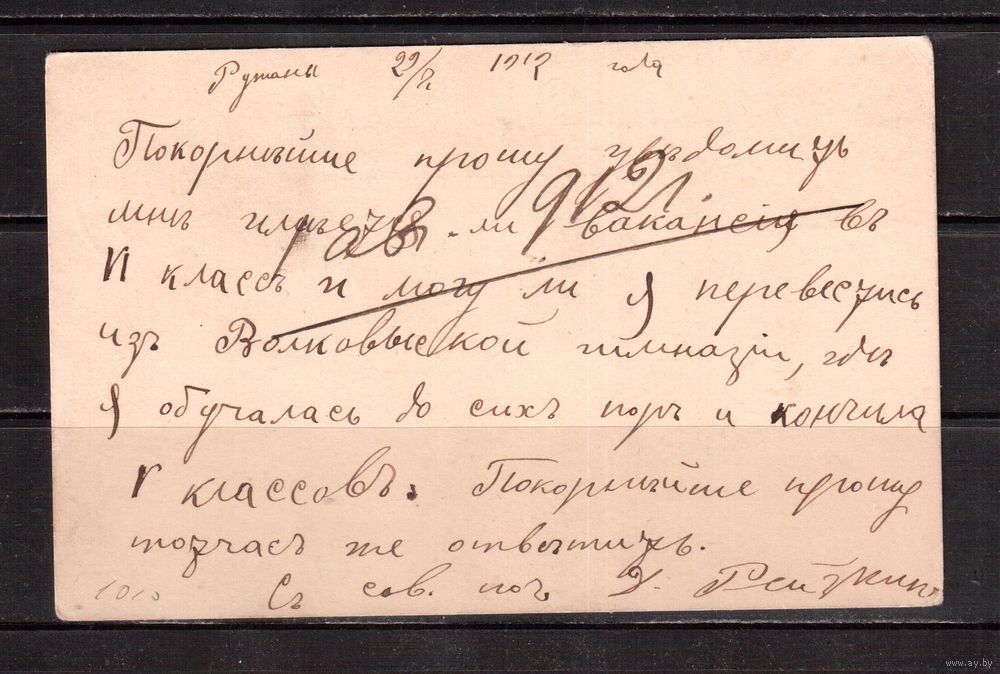 Ружаны 29/VII 1912 года
Покорнѣйше прошу увѣдомить
мнѣ имѣется-ли вакансія въ
VI классъ и могу ли я перевестись
изъ Волковыской гимназіи, гдѣ
я обучалась до сихъ поръ и кончила
V классовъ. Покорнѣйше прошу
тотчасъ же отвѣтить.
Съ сов. поч.
1 авг. 912 г.
1010
www.ay.by